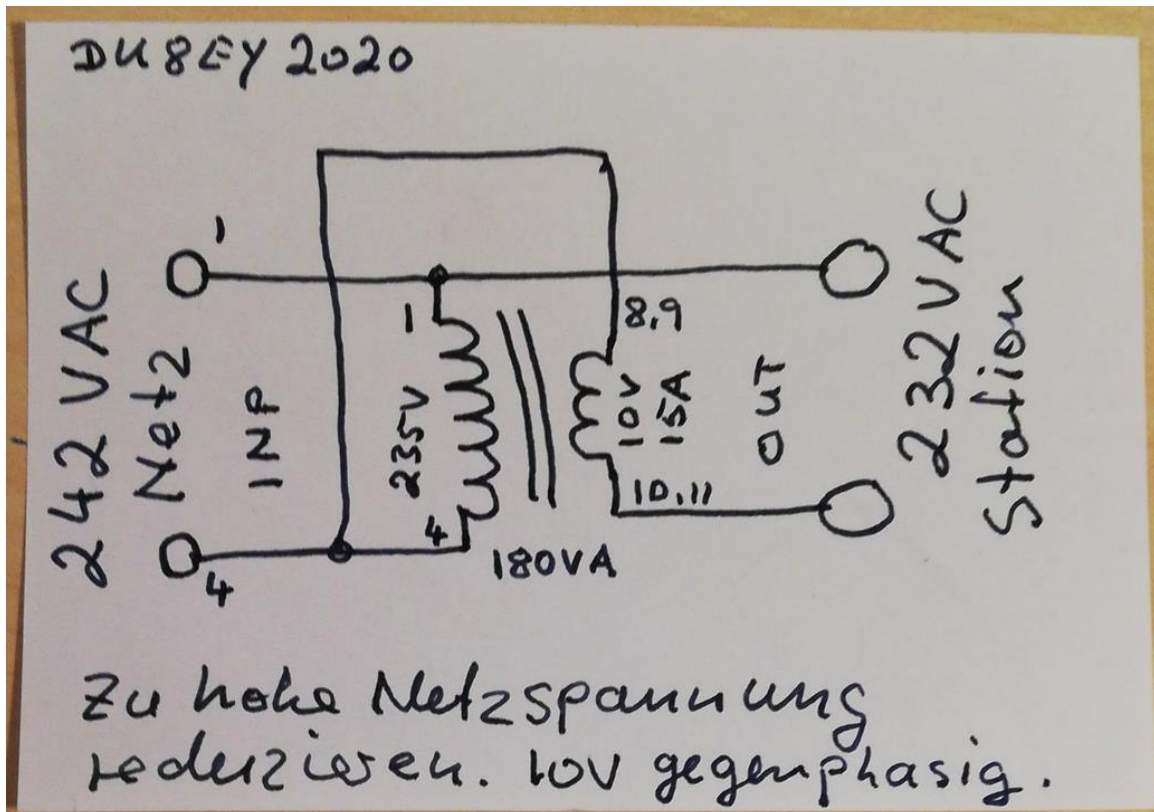 DK8EY 2020
1
242 VAC
Netz
INP
4
1
235V
4
180VA
8,9
10V
15A
10,11
OUT
232 VAC
Station
Zu hohe Netzspannung
reduzieren. 10V gegenphasig.